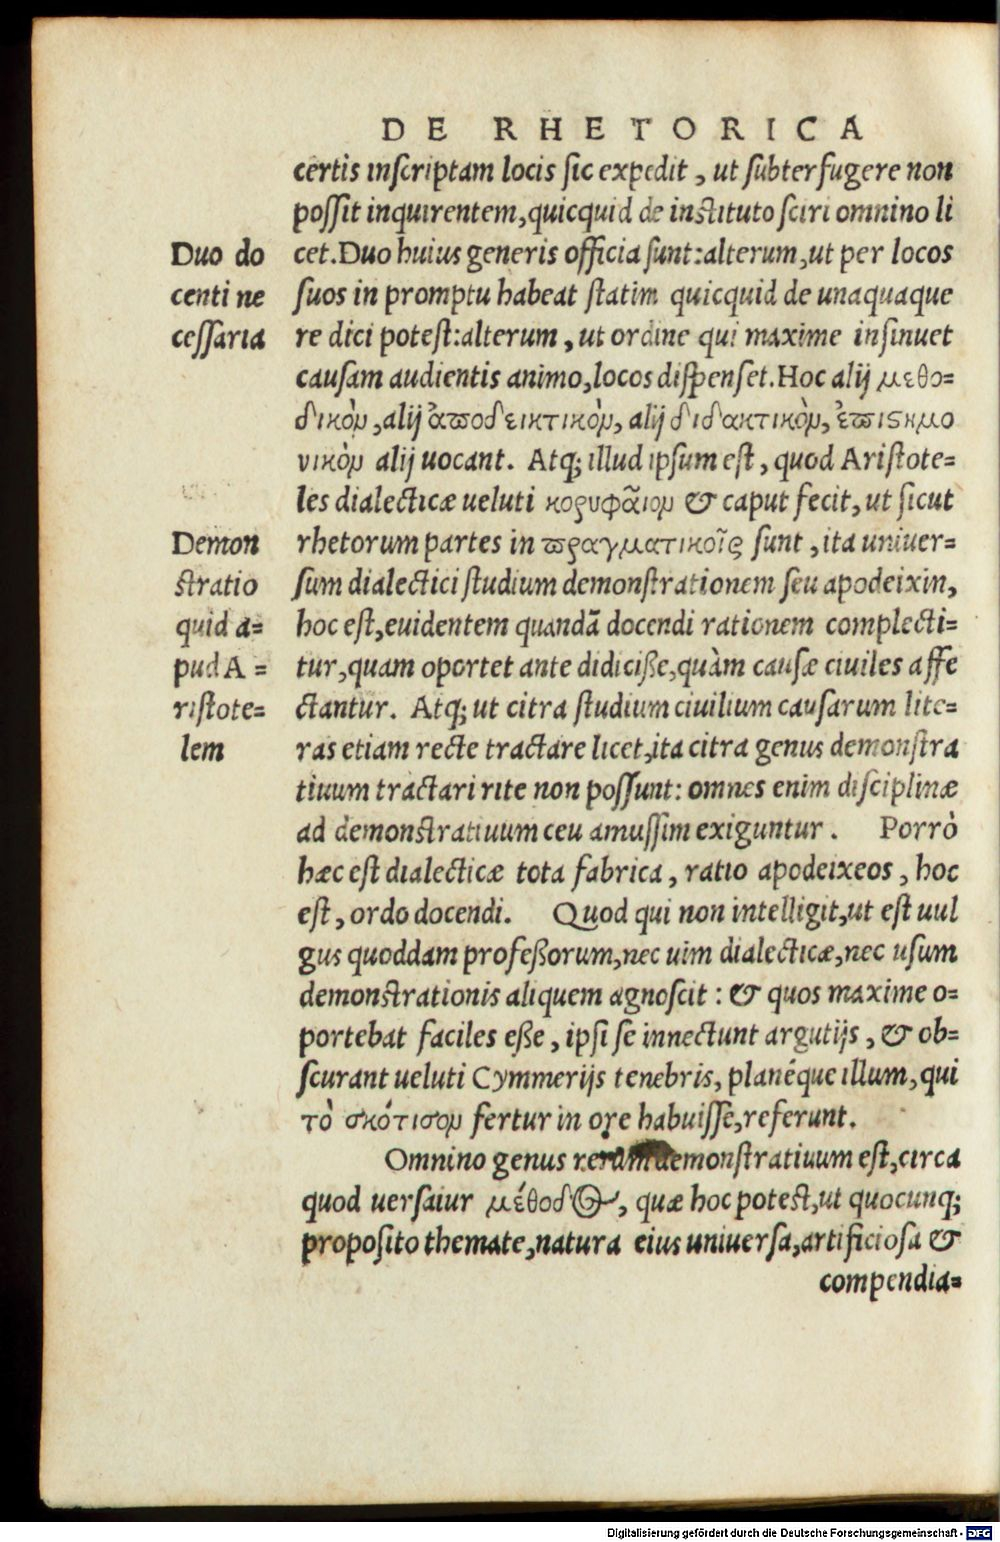 DE RHETORICA
certis inscriptam locis sic expedit, ut subterfugere non
possit inquirentem, quicquid de instituto sciri omnino li
Duo do
cet. Duo huius generis officia sunt: alterum, ut per locos
centi ne
suos in promptu habeat statim quicquid de unaquaque
cessaria
re dici potest: alterum, ut ordine qui maxime insinuet
causam audientis animo, locos dispenset. Hoc alij μεθο=
δικὸν, alij ἀποδεικτικὸν, alij διδακτικὸν, ἐπιςημο
νικὸν alij uocant. Atq; illud ipsum est, quod Aristote=
les dialecticæ ueluti κορυφᾶιον & caput fecit, ut sicut
Demon
rhetorum partes in πραγματικοῖς sunt, ita uniuer=
stratio
sum dialectici studium demonstrationem seu apodeixin,
quid a=
hoc est, euidentem quandã docendi rationem complecti=
pud A=
tur, quam oportet ante didiciße, quàm causæ ciuiles affe
ristote=
ctantur. Atq; ut citra studium ciuilium causarum lite=
lem
ras etiam recte tractare licet, ita citra genus demonstra
tiuum tractari rite non possunt: omnes enim disciplinæ
ad demonstratiuum ceu amussim exiguntur. Porrò
hæc est dialecticæ tota fabrica, ratio apodeixeos, hoc
est, ordo docendi. Quod qui non intelligit, ut est uul
gus quoddam profeßorum, nec uim dialecticæ, nec usum
demonstrationis aliquem agnoscit: & quos maxime o=
portebat faciles eße, ipsi se innectunt argutijs, & ob=
scurant ueluti Cymmerijs tenebris, planéque illum, qui
τὸ σκότισον fertur in ore habuisse, referunt.
Omnino genus rerum demonstratiuum est, circa
quod uersatur μέθοδος, quæ hoc potest, ut quocunq;
proposito themate, natura eius uniuersa, artificiosa &
compendia=
Digitalisierung gefördert durch die Deutsche Forschungsgemeinschaft - DFG